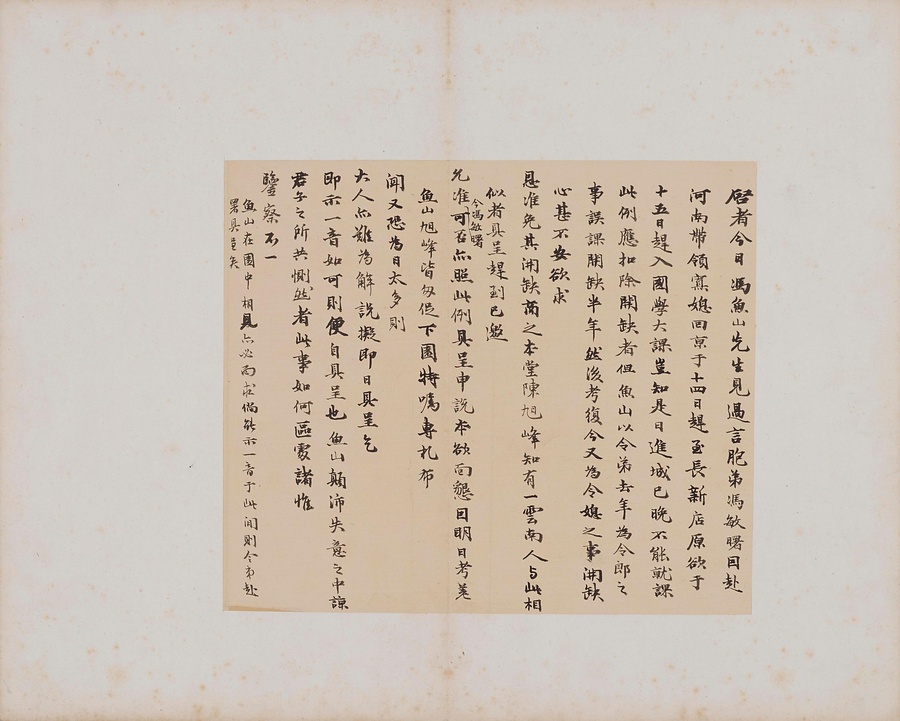 啓者今日馮魚山先生見過言胞弟馮敏曙因赴
河南帶領寡媳回京于十四日趕至長新店原欲于
十五日趕入國學大課豈知是日進城已晚不能就課
此例應扣除開缺者但魚山以令弟去年為令郎之
事誤課開缺半年然後考復今又為令媳之事開缺
心甚不安欲求
恩准免其開缺商之本堂陳旭峰知有一雲南人与此相
似者具呈趕到已邀
允准今馮敏曙可否亦照此例具呈申說本欲面懇因明日考差
魚山旭峰皆匆促下園特囑專札布
聞又恐為日太多則
大人亦難為解說擬即日具呈乞
即示一音如可則便自具呈也魚山顛沛失意之中諒
君子之所共惻然者此事如何區處諸惟
鑒察不一
魚山在園中相見亦必面求倘能示一音于此間則令弟赴
署具呈矣